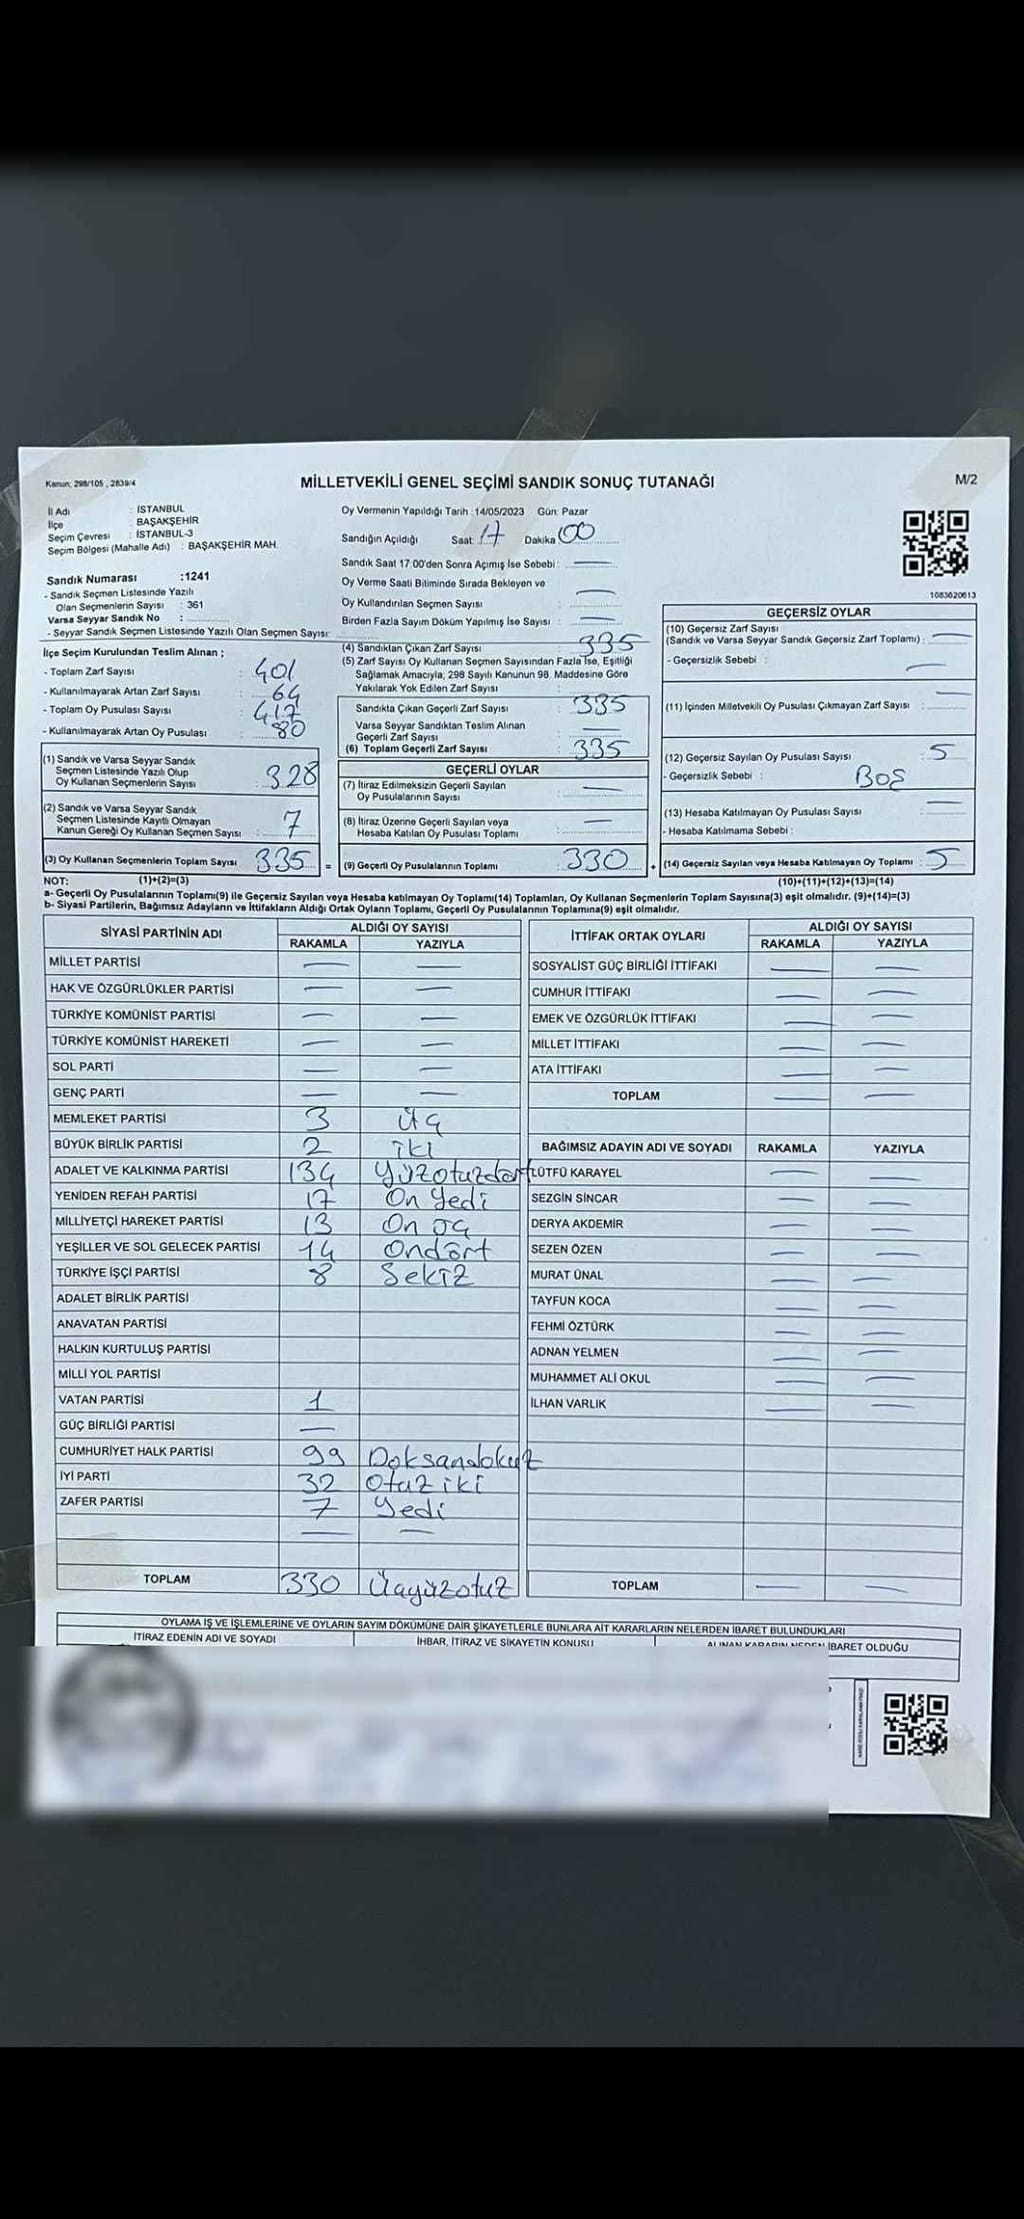 Kanun; 298/105 , 2839/4
MİLLETVEKİLİ GENEL SEÇİMİ SANDIK SONUÇ TUTANAĞI
M/2
İl Adı : İSTANBUL
İlçe : BAŞAKŞEHİR
Seçim Çevresi : İSTANBUL-3
Seçim Bölgesi (Mahalle Adı) : BAŞAKŞEHİR MAH.
Oy Vermenin Yapıldığı Tarih :14/05/2023 Gün: Pazar
Sandığın Açıldığı Saat: 17 Dakika 00
Sandık Saat 17.00'den Sonra Açımış İse Sebebi : —
Oy Verme Saati Bitiminde Sırada Bekleyen ve
Oy Kullandırılan Seçmen Sayısı —
Birden Fazla Sayım Döküm Yapılmış İse Sayısı : —
Sandık Numarası :1241
- Sandık Seçmen Listesinde Yazılı
Olan Seçmenlerin Sayısı : 361
Varsa Seyyar Sandık No :
- Seyyar Sandık Seçmen Listesinde Yazılı Olan Seçmen Sayısı:
1083620613
İlçe Seçim Kurulundan Teslim Alınan ;
- Toplam Zarf Sayısı : 401
- Kullanılmayarak Artan Zarf Sayısı : 64
- Toplam Oy Pusulası Sayısı : 417
- Kullanılmayarak Artan Oy Pusulası : 80
(1) Sandık ve Varsa Seyyar Sandık
Seçmen Listesinde Yazılı Olup
Oy Kullanan Seçmenlerin Sayısı : 328
(2) Sandık ve Varsa Seyyar Sandık
Seçmen Listesinde Kayıtlı Olmayan
Kanun Gereği Oy Kullanan Seçmen Sayısı : 7
(3) Oy Kullanan Seçmenlerin Toplam Sayısı 335 =
(4) Sandıktan Çıkan Zarf Sayısı : 335
(5) Zarf Sayısı Oy Kullanan Seçmen Sayısından Fazla İse, Eşitliği
Sağlamak Amacıyla; 298 Sayılı Kanunun 98. Maddesine Göre
Yakılarak Yok Edilen Zarf Sayısı :
Sandıkta Çıkan Geçerli Zarf Sayısı : 335
Varsa Seyyar Sandıktan Teslim Alınan
Geçerli Zarf Sayısı : —
(6) Toplam Geçerli Zarf Sayısı : 335
GEÇERLİ OYLAR
(7) İtiraz Edilmeksizin Geçerli Sayılan
Oy Pusulalarının Sayısı : —
(8) İtiraz Üzerine Geçerli Sayılan veya
Hesaba Katılan Oy Pusulası Toplamı : —
(9) Geçerli Oy Pusulalarının Toplamı : 330 +
GEÇERSİZ OYLAR
(10) Geçersiz Zarf Sayısı
(Sandık ve Varsa Seyyar Sandık Geçersiz Zarf Toplamı) : —
- Geçersizlik Sebebi : —
(11) İçinden Milletvekili Oy Pusulası Çıkmayan Zarf Sayısı : —
(12) Geçersiz Sayılan Oy Pusulası Sayısı : 5
- Geçersizlik Sebebi : BOŞ
(13) Hesaba Katılmayan Oy Pusulası Sayısı : —
- Hesaba Katılmama Sebebi :
(14) Geçersiz Sayılan veya Hesaba Katılmayan Oy Toplamı : 5
NOT: (1)+(2)=(3)
(10)+(11)+(12)+(13)=(14)
a- Geçerli Oy Pusulalarının Toplamı(9) ile Geçersiz Sayılan veya Hesaba katılmayan Oy Toplamı(14) Toplamları, Oy Kullanan Seçmenlerin Toplam Sayısına(3) eşit olmalıdır. (9)+(14)=(3)
b- Siyasi Partilerin, Bağımsız Adayların ve İttifakların Aldığı Ortak Oyların Toplamı, Geçerli Oy Pusulalarının Toplamına(9) eşit olmalıdır.
SİYASİ PARTİNİN ADI
ALDIĞI OY SAYISI
RAKAMLA YAZIYLA
MİLLET PARTİSİ — —
HAK VE ÖZGÜRLÜKLER PARTİSİ — —
TÜRKİYE KOMÜNİST PARTİSİ — —
TÜRKİYE KOMÜNİST HAREKETİ — —
SOL PARTİ — —
GENÇ PARTİ — —
MEMLEKET PARTİSİ 3 Üç
BÜYÜK BİRLİK PARTİSİ 2 iki
ADALET VE KALKINMA PARTİSİ 134 Yüzotuzdört
YENİDEN REFAH PARTİSİ 17 On Yedi
MİLLİYETÇİ HAREKET PARTİSİ 13 On üç
YEŞİLLER VE SOL GELECEK PARTİSİ 14 Ondört
TÜRKİYE İŞÇİ PARTİSİ 8 Sekiz
ADALET BİRLİK PARTİSİ
ANAVATAN PARTİSİ
HALKIN KURTULUŞ PARTİSİ
MİLLİ YOL PARTİSİ
VATAN PARTİSİ 1
GÜÇ BİRLİĞİ PARTİSİ —
CUMHURİYET HALK PARTİSİ 99 Doksandokuz
İYİ PARTİ 32 Otuz iki
ZAFER PARTİSİ 7 Yedi
— —
TOPLAM 330 Üçyüzotuz
İTTİFAK ORTAK OYLARI
ALDIĞI OY SAYISI
RAKAMLA YAZIYLA
SOSYALİST GÜÇ BİRLİĞİ İTTİFAKI — —
CUMHUR İTTİFAKI — —
EMEK VE ÖZGÜRLÜK İTTİFAKI — —
MİLLET İTTİFAKI — —
ATA İTTİFAKI — —
TOPLAM
BAĞIMSIZ ADAYIN ADI VE SOYADI RAKAMLA YAZIYLA
LÜTFÜ KARAYEL — —
SEZGİN SİNCAR — —
DERYA AKDEMİR — —
SEZEN ÖZEN — —
MURAT ÜNAL — —
TAYFUN KOCA — —
FEHMİ ÖZTÜRK — —
ADNAN YELMEN — —
MUHAMMET ALİ OKUL — —
İLHAN VARLIK — —
TOPLAM — —
OYLAMA İŞ VE İŞLEMLERİNE VE OYLARIN SAYIM DÖKÜMÜNE DAİR ŞİKAYETLERLE BUNLARA AİT KARARLARIN NELERDEN İBARET BULUNDUKLARI
İTİRAZ EDENİN ADI VE SOYADI
İHBAR, İTİRAZ VE ŞİKAYETİN KONUSU
ALINAN KARARIN NEDEN İBARET OLDUĞU